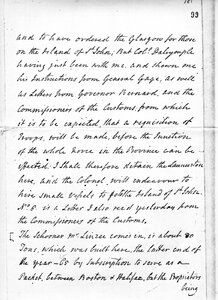 99
and to have ordered the Glasgow for those
on the Island of St. John; But Colo. Dalrymple
having just been with me, and shown me
his Instructions from General Gage, as well
as Letters from Governor Bernard, and the
Commissioners of the Customs, from which
it is to be expected, that a requisition of
Troops, will be made, before the Junction
of the whole Force in the Province can be
effected. I shall therefore detain the Launceston
here, and the Colonel, will endeavour to
hire small Vessels to fetch the Island of St. John.
No. 5. is a Letter I also recd. yesterday from
the Commissioners of the Customs.
The Schooner Mr. Linzee comes in, is about 90
Tons, which was built here, the latter end of
the year - 65 by Subscription to serve as a
Packet, between Boston & Halifax, but the Proprietors
being